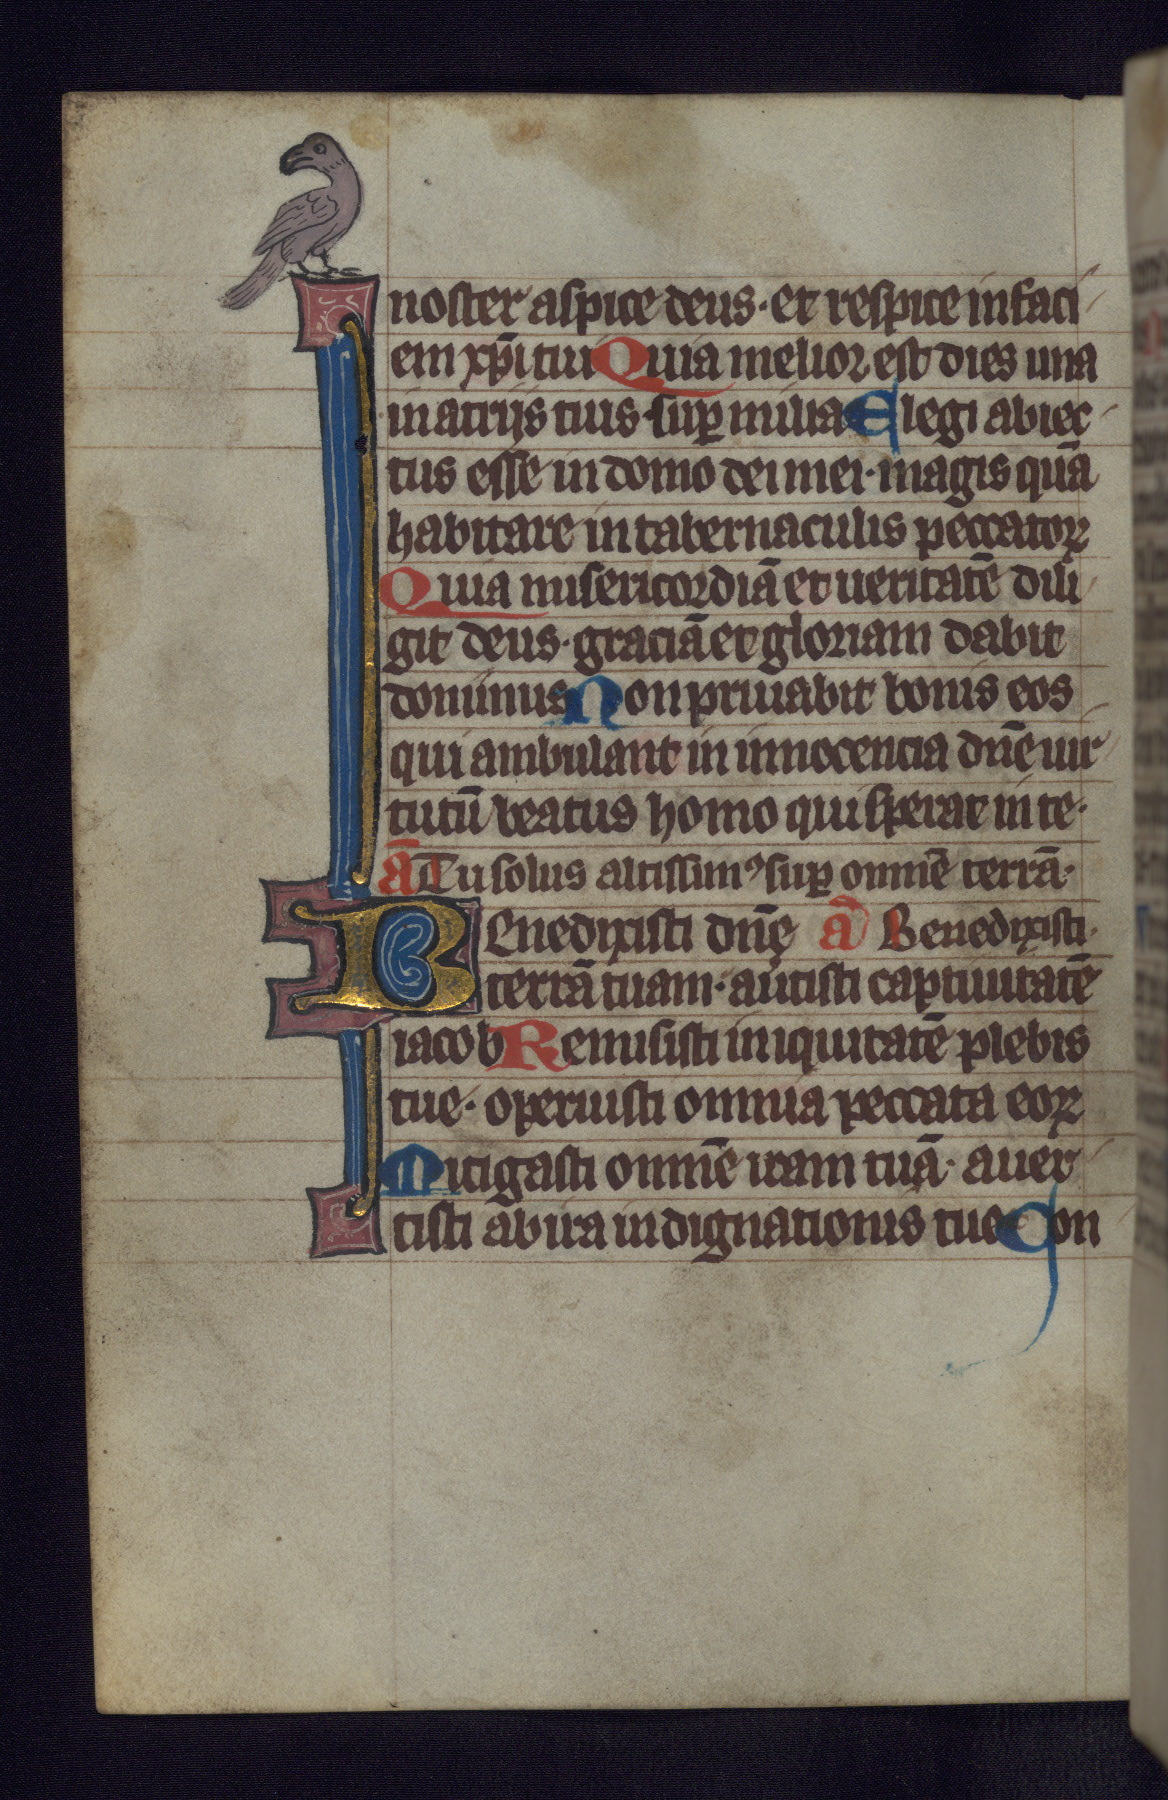 noster aspice deus· et respice in faci
em xp̄i tui Quia melior est dies una
in atrijs tuis· sup̄ milia Elegi abiec
tus esse in domo dei mei· magis quā
habitare in tabernaculis peccatoꝝ
Quia misericordiā et ueritatē dili
git deus· graciā et gloriam dabit
dominus Non priuabit bonis eos
qui ambulant in innocencia dn̄e uir
tutū beatus homo qui sperat in te·
ā Tu solus altissimꝰ sup̄ omnē terrā·
BEnedixisti dn̄e ā Benedixisti·
terrā tuam· auertisti captiuitatē
iacob Remisisti iniquitatē plebis
tue· operuisti omnia peccata eoꝝ
Mitigasti omnē iram tuā· auer
tisti ab ira indignationis tue Con